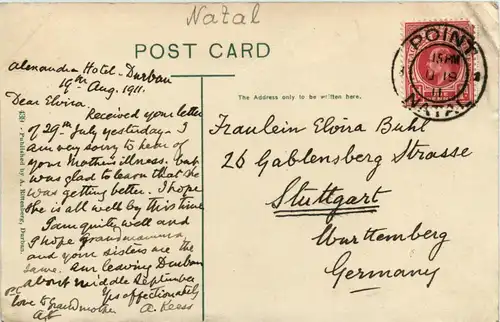 Natal
POST CARD
Alexandra Hotel - Durban
19th Aug. 1911.
Dear Elvira
Received your letter
of 29th July yesterday - I
am very sorry to hear of
your Mothers illness. but
was glad to learn that she
was getting better. I hope
she is all well by this time
I am quite well and
I hope Grandmamma
and your sisters are the
same. Am leaving Durban
about middle September
Yrs affectionately
love to Grandmother
A. Rees
The Address only to be written here.
Fraulein Elvira Buhl
26 Gablensberg Strasse
Stuttgart
Wurttemberg
Germany
POINT
15 PM
AU 19
11
NATAL
Published by A. Rittenberg, Durban.